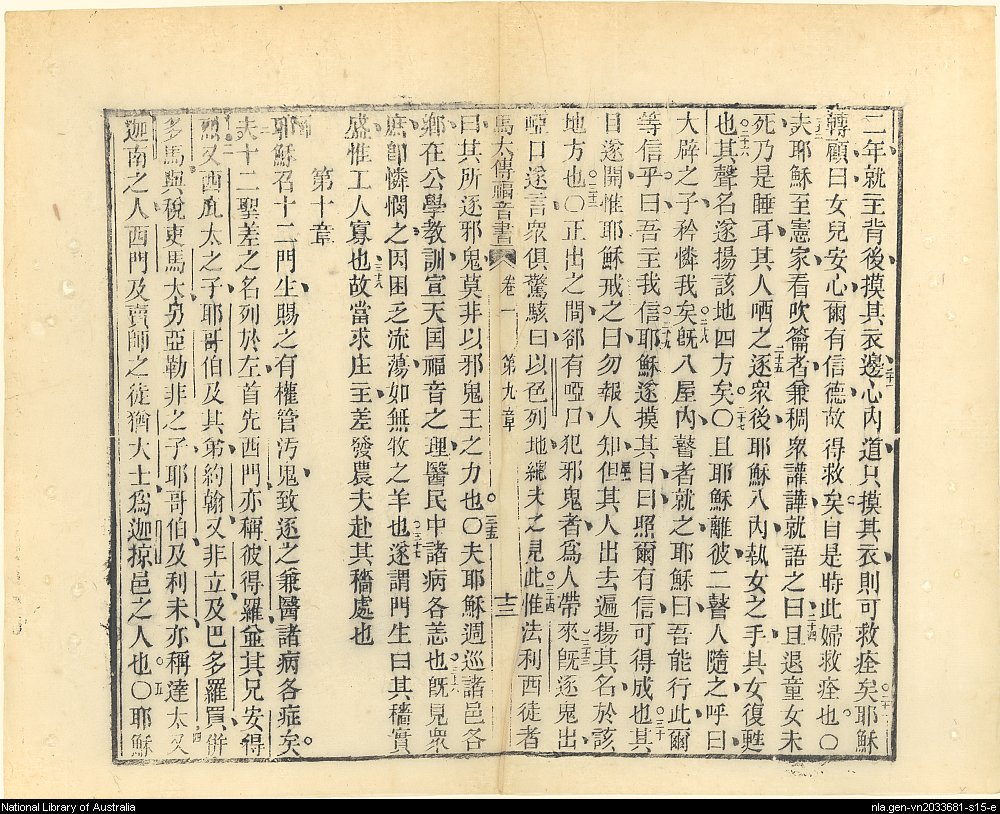 二年就主背後摸其衣邊心內道只摸其衣則可救痊矣耶穌
轉顧曰女兒安心爾有信德故得救矣自是時此婦救痊也○
夫耶穌至憲家看吹籥者兼稠衆讙譁就語之曰且退童女未
死乃是睡耳其人哂之逐衆後耶穌入內執女之手其女復甦
也其聲名遂揚該地四方矣○且耶穌離彼二瞽人隨之呼曰
大辟之子矜憐我矣旣入屋內瞽者就之耶穌曰吾能行此爾
等信乎曰吾主我信耶穌遂摸其目曰照爾有信可得成也其
目遂開惟耶穌戒之曰勿報人知但其人出去遍揚其名於該
地方也○正出之間卻有啞口犯邪鬼者爲人帶來旣逐鬼出
啞口遂言衆俱驚駭曰以色列地總未之見此惟法利西徒者
馬太傳福音書 卷一 第九章 十三
曰其所逐邪鬼莫非以邪鬼王之力也○夫耶穌週巡諸邑各
鄉在公學教訓宣天國福音之理醫民中諸病各恙也旣見衆
庶卽憐憫之因困乏流蕩如無牧之羊也遂謂門生曰其穡實
盛惟工人寡也故當求庄主差發農夫赴其穡處也
第十章
耶穌召十二門生賜之有權管汚鬼致逐之兼醫諸病各症矣
夫十二聖差之名列於左首先西門亦稱彼得羅並其兄安得
烈又西庇太之子耶哥伯及其弟約翰又非立及巴多羅買併
多馬與稅吏馬太另亞勒非之子耶哥伯及利未亦稱達太又
迦南之人西門及賣師之徒猶大士爲迦掠邑之人也○耶穌
National Library of Australia
nla.gen-vn2033681-s15-e